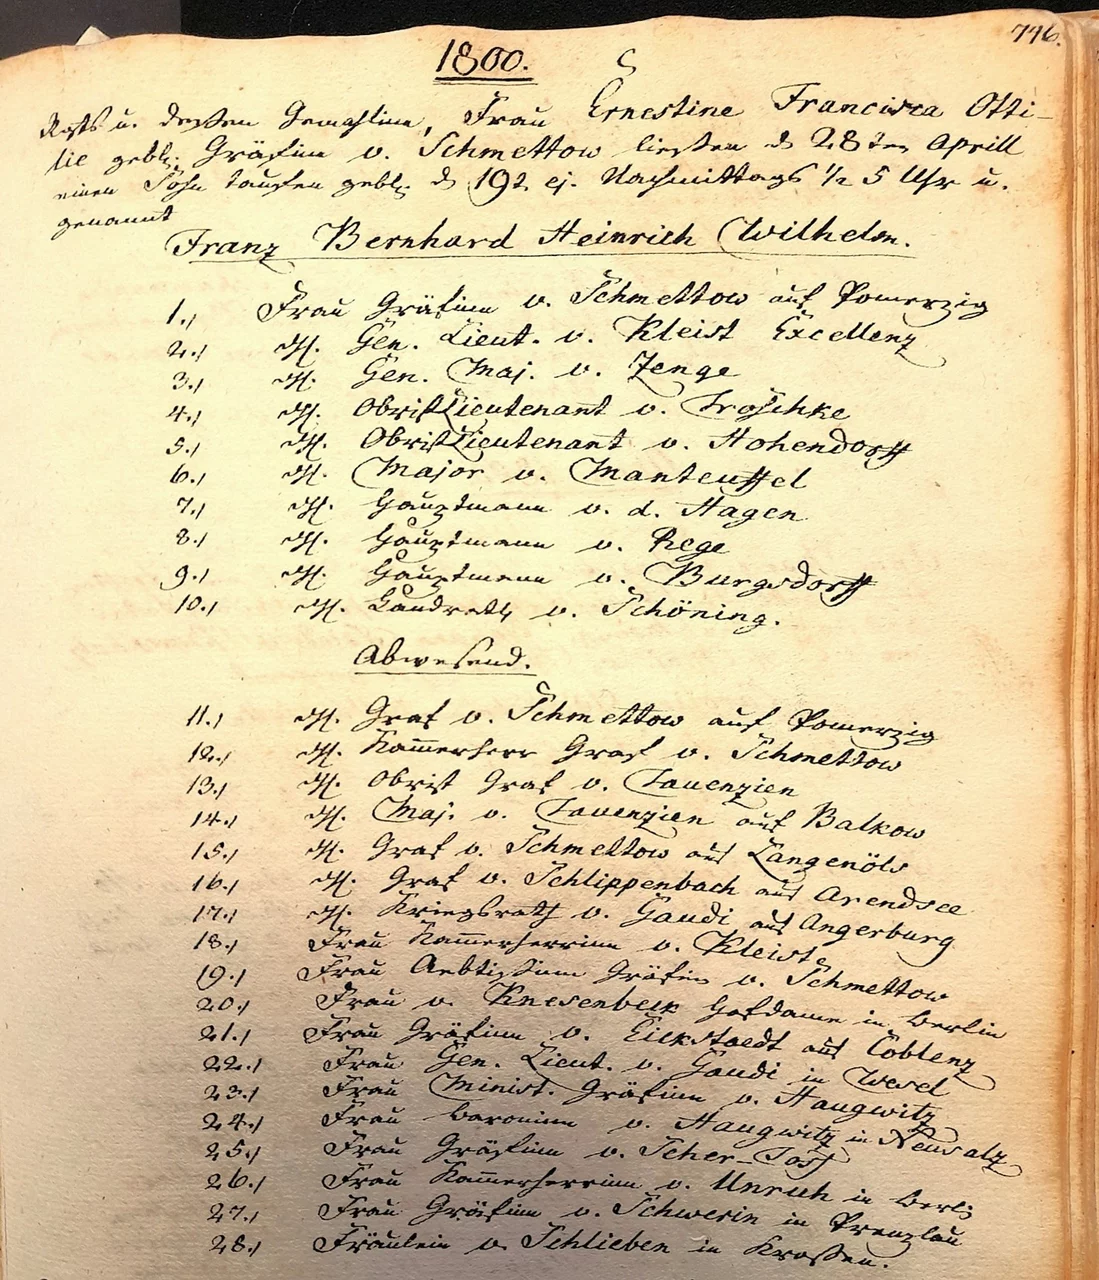 776.
1800.
Regts u. deßen Gemahlinn, Frau Ernestine Francisca Otti-
lie gebh. Gräfinn v. Schmettow ließen d 28ten Aprill
einen Sohn taufen gebh. d 19t. ej. Nachmittags ½ 5 Uhr u.
genannt
Franz Bernhard Heinrich Wilhelm.
1., Frau Gräfinn v. Schmettow auf Pomerzig
2., H. Gen. Lieut. v. Kleist Excellenz
3., H. Gen. Maj. v. Zenge
4., H. ObristLieutenant v. Troschke
5., H. ObristLieutenant v. Hohendorff
6., H. Major v. Manteuffel
7., H. Hauptmann v. d. Hagen
8., H. Hauptmann v. Rege
9., H. Hauptmann v. Burgsdorff
10., H. Landrath v. Schöning.
Abwesend.
11., H. Graf v. Schmettow auf Pomerzig
12., H. Kam̅erherr Graf v. Schmettow
13., H. Obrist Graf v. Tauenzien
14., H. Maj. v. Tauenzien auf Balkow
15., H. Graf v. Schmettow aus Langenöls
16., H. Graf v. Schlippenbach aus Arendsee
17., H. Kriegsrath v. Gaudi aus Angerburg
18., Frau Kam̅erherrinn v. Kleist
19., Frau Aebtißinn Gräfin v. Schmettow
20., Frau v. Knesenbeck Hofdame in Berlin
21., Frau Gräfinn v. Eickstaedt aus Coblenz
22., Frau Gen. Lieut. v. Gaudi in Wesel
23., Frau Minist. Gräfinn v. Haugwitz
24., Frau Baroninn v. Haugwitz in Neusalz
25., Frau Gräfinn v. Scher-Toss
26., Frau Kam̅erherrinn v. Unruh in Berl.
27., Frau Gräfinn v. Schwerin in Prenzlau
28., Fräulein v. Schlieben in Kroßen.